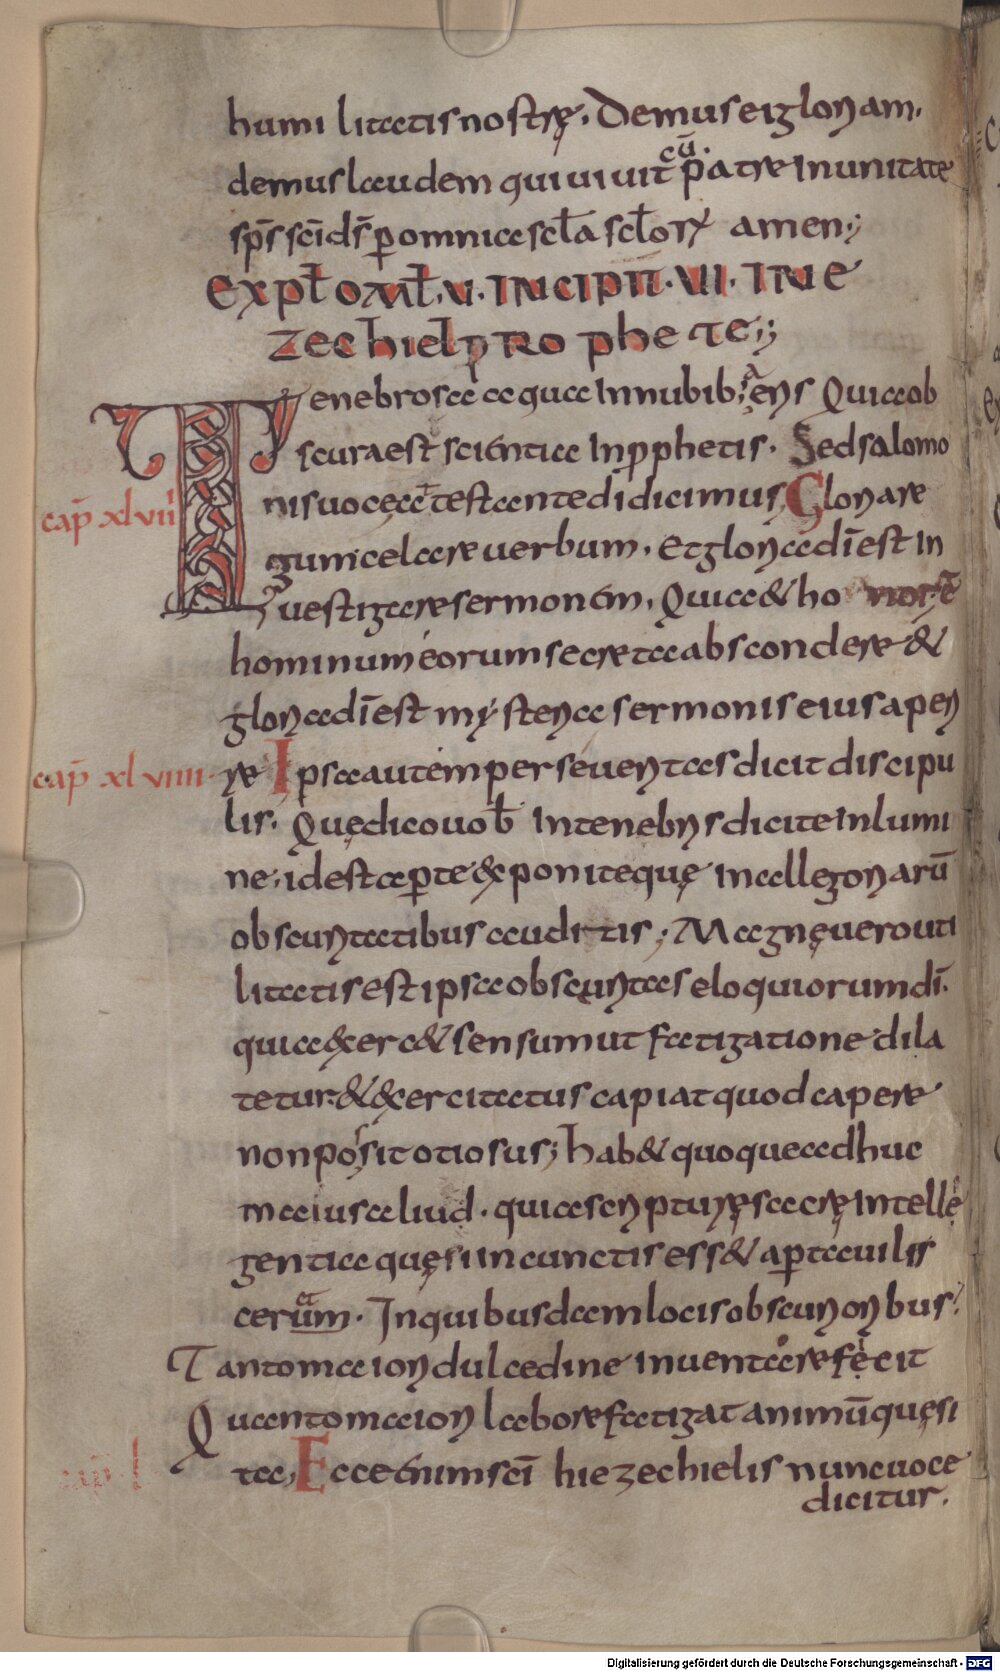 humilitatis nostrę. Demus ei gloriam.
demus laudem qui uiuit cū patre in unitate
sp̄s sc̄i d̄s p̄ omnia scła scłorꝝ amen;
Explt omł. v. incipit̄ . vi. in e
zechiel p̱ro phe te;;
Tenebrosa aqua in nubib; aeris Quia ob
scura est scientia in ꝓphetis. Sed salomo
nis uoce attestante didicimus Gloria re
gum celare uerbum. et gloria dī est in
uestigare sermonem. Quia & honor ē
hominum eorum secreta abscondere &
gloria dī est mẏsteria sermonis eius aperi
cap̄ xlviii
re Ipsa autem per se ueritas dicit discipu
cap̄ xlviiii
lis. Quę dico uob̄ in tenebris dicite in lumi
ne. id est aꝑte exponite quę in allegoriarū
obscuritatibus auditis; Magnę uero uti
litatis est ipsa obscuritas eloquiorum dī.
quia exerc& sensum ut fatigatione dila
tetur. & exercitatus capiat quod capere
non possit otiosus; hab& quoque adhuc
maius aliud. quia scripturę sacrę intelle
gentia quę si in cunctis ess& aꝑta uilis
ceretur
um. In quibusdam locis obscurioribus.
Tanto maiori dulcedine inuenta reficit
Quanto maiori labore fatigat animū quęsi
cap̄ l
ta; Ecce enim sc̄i hiezechielis nunc uoce
dicitur.
Digitalisierung gefördert durch die Deutsche Forschungsgemeinschaft - DFG